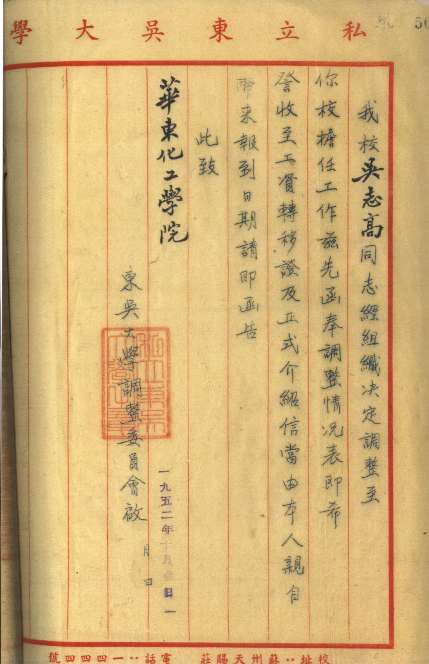 私立東吳大學
我校吳志高同志經組織决定調整至
你校擔任工作茲先函奉調整情况表即希
詧收至工資轉移證及正式介紹信當由本人親自
帶来報到日期請即函告
此致
華東化工學院
東吳大學調整委員會啟
一九五二年
月 日
校址：蘇州天賜莊 電話：一四四四號